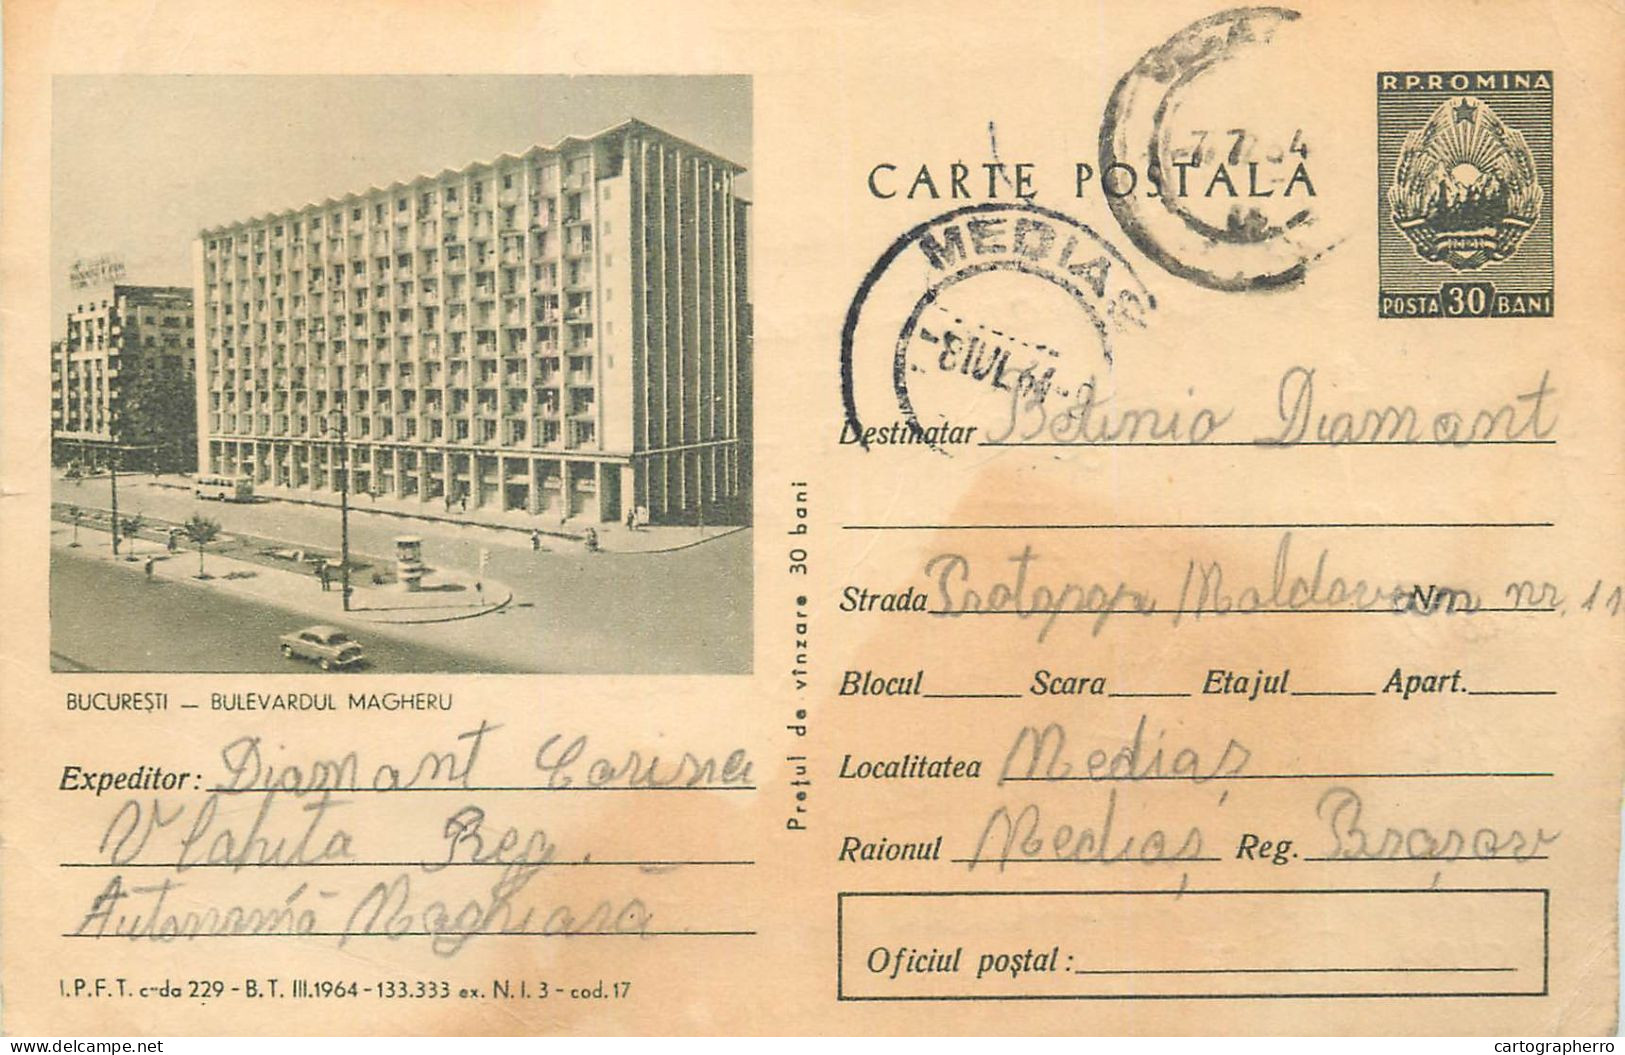 CARTE POSTALA
R.P.ROMINA
POSTA 30 BANI
-7.7.64
MEDIAS
-8 IUL 64-9
BUCUREȘTI — BULEVARDUL MAGHERU
Expeditor: Diamant Corina
Vlahita Reg.
Autonomă Maghiară
I.P.F.T. c-da 229 - B.T. III.1964 - 133.333 ex. N.I. 3 - cod. 17
Prețul de vînzare 30 bani
Destinatar Betinio Diamant
Strada Protopop Moldovan Nr. nr. 11
Blocul Scara Etajul Apart.
Localitatea Mediaș
Raionul Mediaș Reg. Brașov
Oficiul poștal:
cartographerro